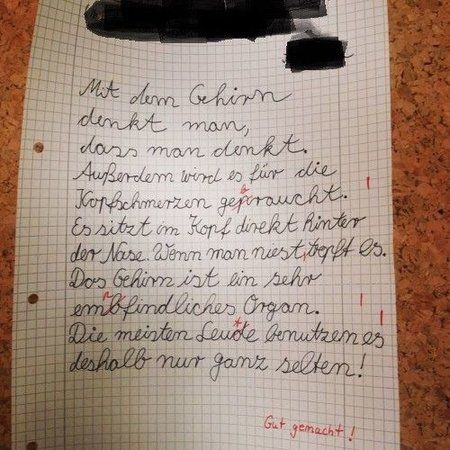 Mit dem Gehirn
denkt man,
dass man denkt.
Außerdem wird es für die
Kopfschmerzen gepraucht.
Es sitzt im Kopf direkt hinter
der Nase. Wenn man niest, tropft es.
Das Gehirn ist ein sehr
embfindliches Organ.
Die meisten Leude benutzen es
deshalb nur ganz selten!
Gut gemacht!